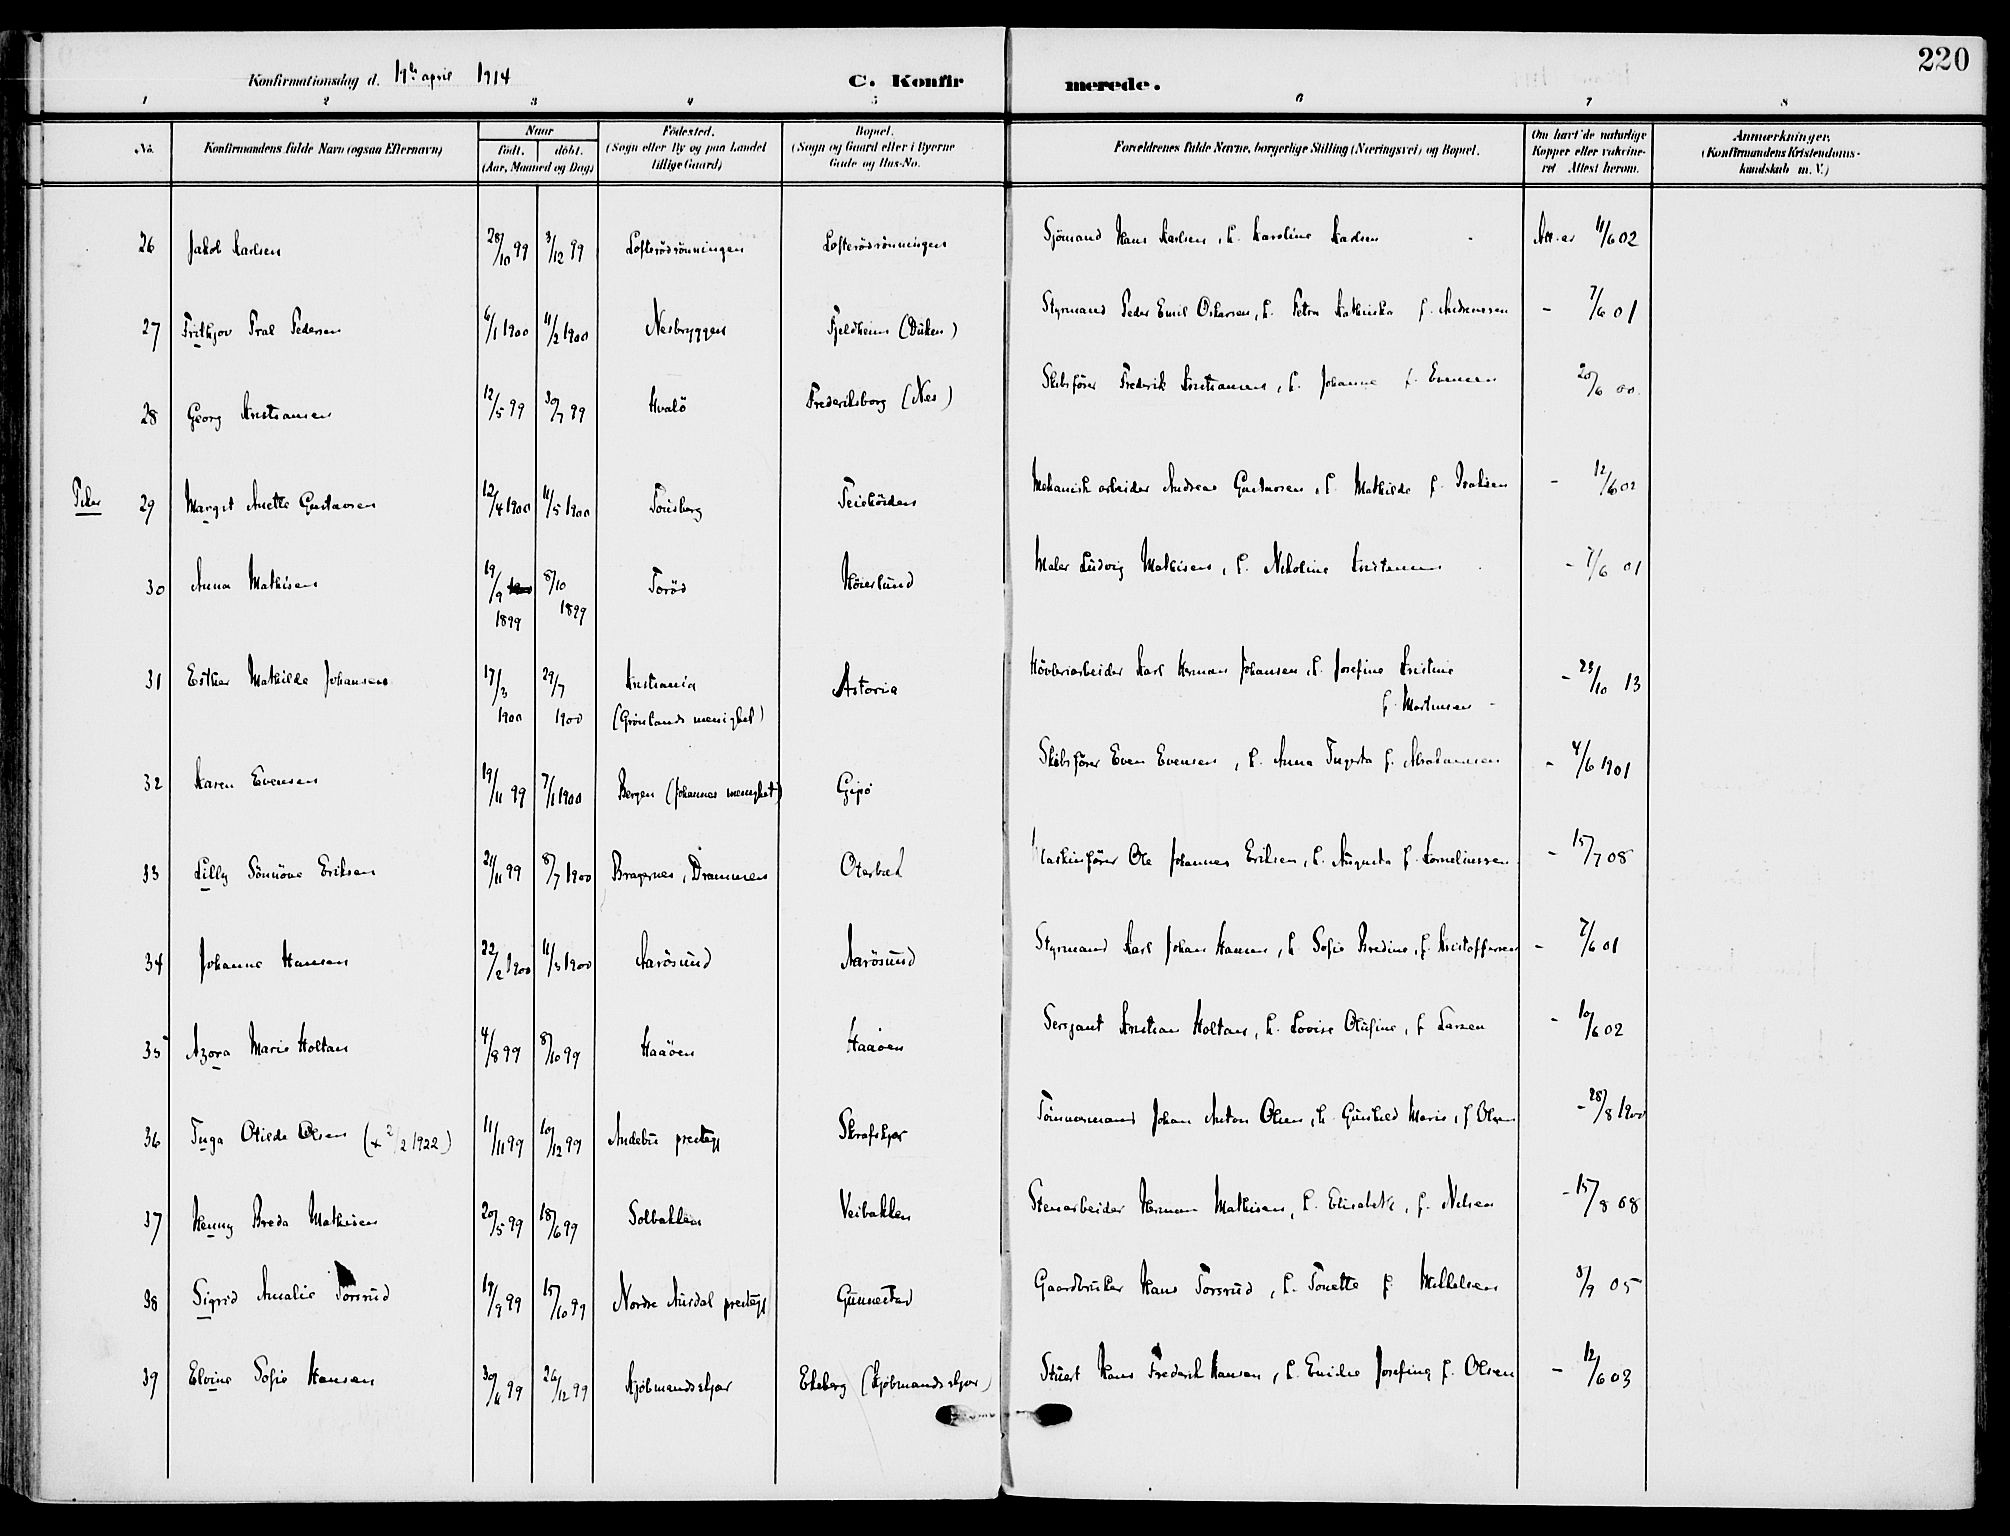 220
Konfirmationsdag d. 19de april 1914
C. Konfirmerede.
1 2 3 4 5 6 7 8
No. Konfirmandens fulde Navn (ogsaa Efternavn) Naar født. døbt. (Aar, Maaned og Dag) Fødested. (Sogn eller By og paa Landet tillige Gaard) Bopæl. (Sogn og Gaard eller i Byerne Gade og Hus-No. Forældrenes fulde Navne, borgerlige Stilling (Næringsvei) og Bopæl. Om havt de naturlige Kopper eller vakcineret Attest herom. Anmærkninger. (Konfirmandens Kristendomskundskab m. V.)
26 Jakob Karlsen 28/10 99 3/12 99 Lofterödrönningen Lofterödrönningen Sjömand Hans Karlsen, h. Karoline Karlsen Att. av 11/6 02
27 Frithjov Pedersen 6/1 1900 11/2 1900 Nesbryggen Fjeldheim (Düken) Styrmand Peder Emil Oskarsen, h. Petra Kathinka f. Andreassen - 7/6 01
28 Georg Kristiansen 12/5 99 30/7 99 Hvalö Frederiksborg (Nes) Skibsförer Frederik Kristiansen, h. Johanne f. Evensen 20/6 00.
Piker 29 Margit Anette Gustavsen 12/4 1900 11/5 1900 Tönsberg Mekanisk arbeider Andreas Gustavsen, h. Mathilde f. Isaksen - 12/6 02
30 Anna Mathisen 19/9 1899 8/10 1899 Toröd Höierlund Maler Ludvig Mathisen, h. Nikoline Kristensen - 7/6 01
31 Esther Mathilde Johansen 17/3 1900 29/7 1900 Kristiania (Grönlands menighet) Astoria Hövleriarbeider Karl Herman Johansen h. Josefine Kristine f. Mortensen - 23/10 13
32 Karen Evensen 19/11 99 7/1 1900 Bergen (Johannes menighet) Gipö Skibsförer Even Evensen, h. Anna Ingerta f. Abrahamsen - 4/6 1901
33 Lilly Sönnöve Eriksen 21/11 99 8/7 1900 Bragernes, Drammen Oterbæk Maskinförer Ole Johannes Eriksen, h. Augusta f. Korneliussen - 15/7 08
34 Johanne Hansen 22/2 1900 11/3 1900 Aarösund Aarösund Styrmand Karl Johan Hansen, h. Sofie Bredine, f. Kristoffersen - 7/6 01
35 Azora Marie Holtan 4/8 99 8/10 99 Haaöen Haaöen Sersjant Kristian Holtan, h. Lovise Olufine, f. Larsen - 10/6 02
36 Inga Otilde Olsen (+ 2/2 1922) 11/11 99 10/12 99 Andebu prestegj Skrafskjær Tömmermand Johan Anton Olsen, h. Gunhild Marie, f Olsen - 28/8 1900
37 Henny Breda Mathisen 20/5 99 18/6 99 Solbakken Veibakken Stenarbeider Herman Mathisen, h. Elisabeth, f. Nilsen - 15/8 08
38 Sigrid Amalie Torsrud 19/9 99 15/10 99 Nordre Aurdal prestegj Gunnestad Gaardbruker Hans Torsrud, h. Tonette f Mikkelsen 8/9 05
39 Elvine Sofie Hansen 30/11 99 26/12 99 Kjöbmandsskjær Ekeberg (Kjöbmandsskjær) Stuert Hans Frederik Hansen, h. Emilie Josefine f. Olsen - 12/6 03